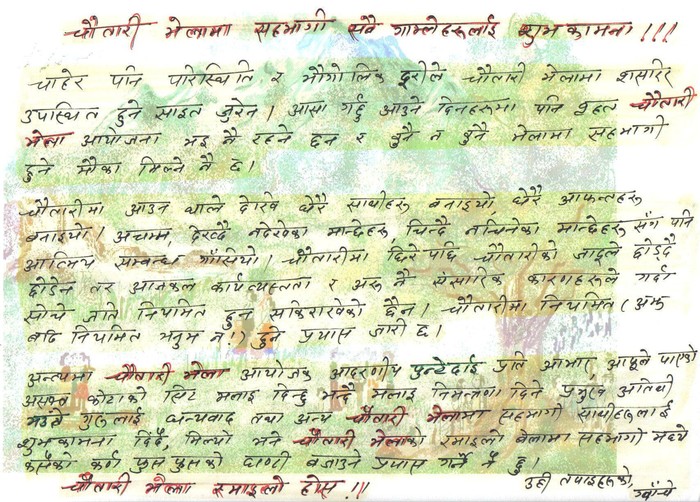 चौतारी मेलामा सहभागी सवै गाम्लेहरूलाई शुभकामना !!!
चाहेर पनि परिस्थिति र भौगोलिक दूरीले चौतारी मेलामा शसरिर
उपस्थित हुने साइत जुरेन । आसा गर्छु आउने दिनहरूमा पनि बृहत चौतारी
मेला आयोजना भइ नै रहने छन र कुनै न कुनै मेलामा सहभागी
हुने मौका मिल्ने नै छ ।
चौतारीमा आउन थाले देखि धेरै साथीहरू बनाइयो, धेरै आफन्तहरू
बनाइयो । अचम्म, देख्दै नदेखेका मान्छेहरू, चिन्दै नचिनेका मान्छेहरू संग पनि
आत्मिय सम्बन्ध गाँसियो । चौतारीमा छिरे पछि चौतारीको जादूले छोड्दै
छोडेन तर आजकल कार्यव्यस्तता र अरू नै संसारिक कारणहरूले गर्दा
सोचे जति नियमित हुन सकिराखेको छैन । चौतारीमा नियमित (अझ
बढि नियमित भनुम न !) हुने प्रयास जारी छ ।
अन्त्यमा चौतारी मेला आयोजक आदरणीय पुन्टेदाई प्रति आभार, आफूले पाएको
असख्य कोटाको सिट मलाइ दिन्छु भन्दै मलाइ निमन्त्रणा दिने प्रमुख अतिथी
गुरुलाई धन्यवाद तथा अन्य चौतारी मेलामा सहभागी साथीहरूलाई
शुभकामना दिँदै, मिल्यो भने चौतारी मेलाको रमाइलो बेलामा सहभागी मध्ये
कसैको कर्ण फुसफुसको घाण्टी बजाउने प्रयास गर्ने नै छु ।
चौतारी मेला रमाइलो होस !!!
उही तपाइहरूको,